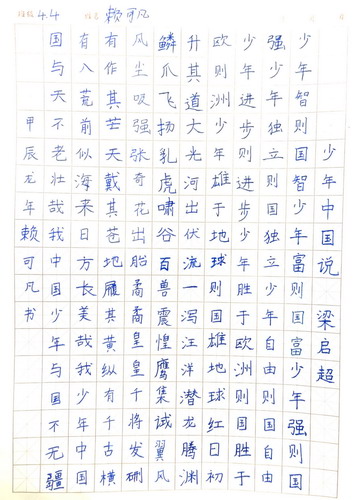 班级 4.4 姓名 赖可凡
少年中国说 梁启超
少年智则国智少年富则国富少年强则国
强少年独立则国独立少年自由则国自由
少年进步则进步少年胜于欧洲则国胜于
欧则洲少年雄于地球则国雄地球红日初
升其道大光河出伏流一泻汪洋潜龙腾渊
鳞爪飞扬乳虎啸谷百兽震惶鹰集试翼风
风尘吸强张奇花出胎矞矞皇皇千将发硎
有作其芒天戴其苍地履其黄纵有千古横
有入荒前似海来日方长美哉我少年中国
国与天不老壮哉我中国少年与国不无疆
甲辰龙年赖可凡书